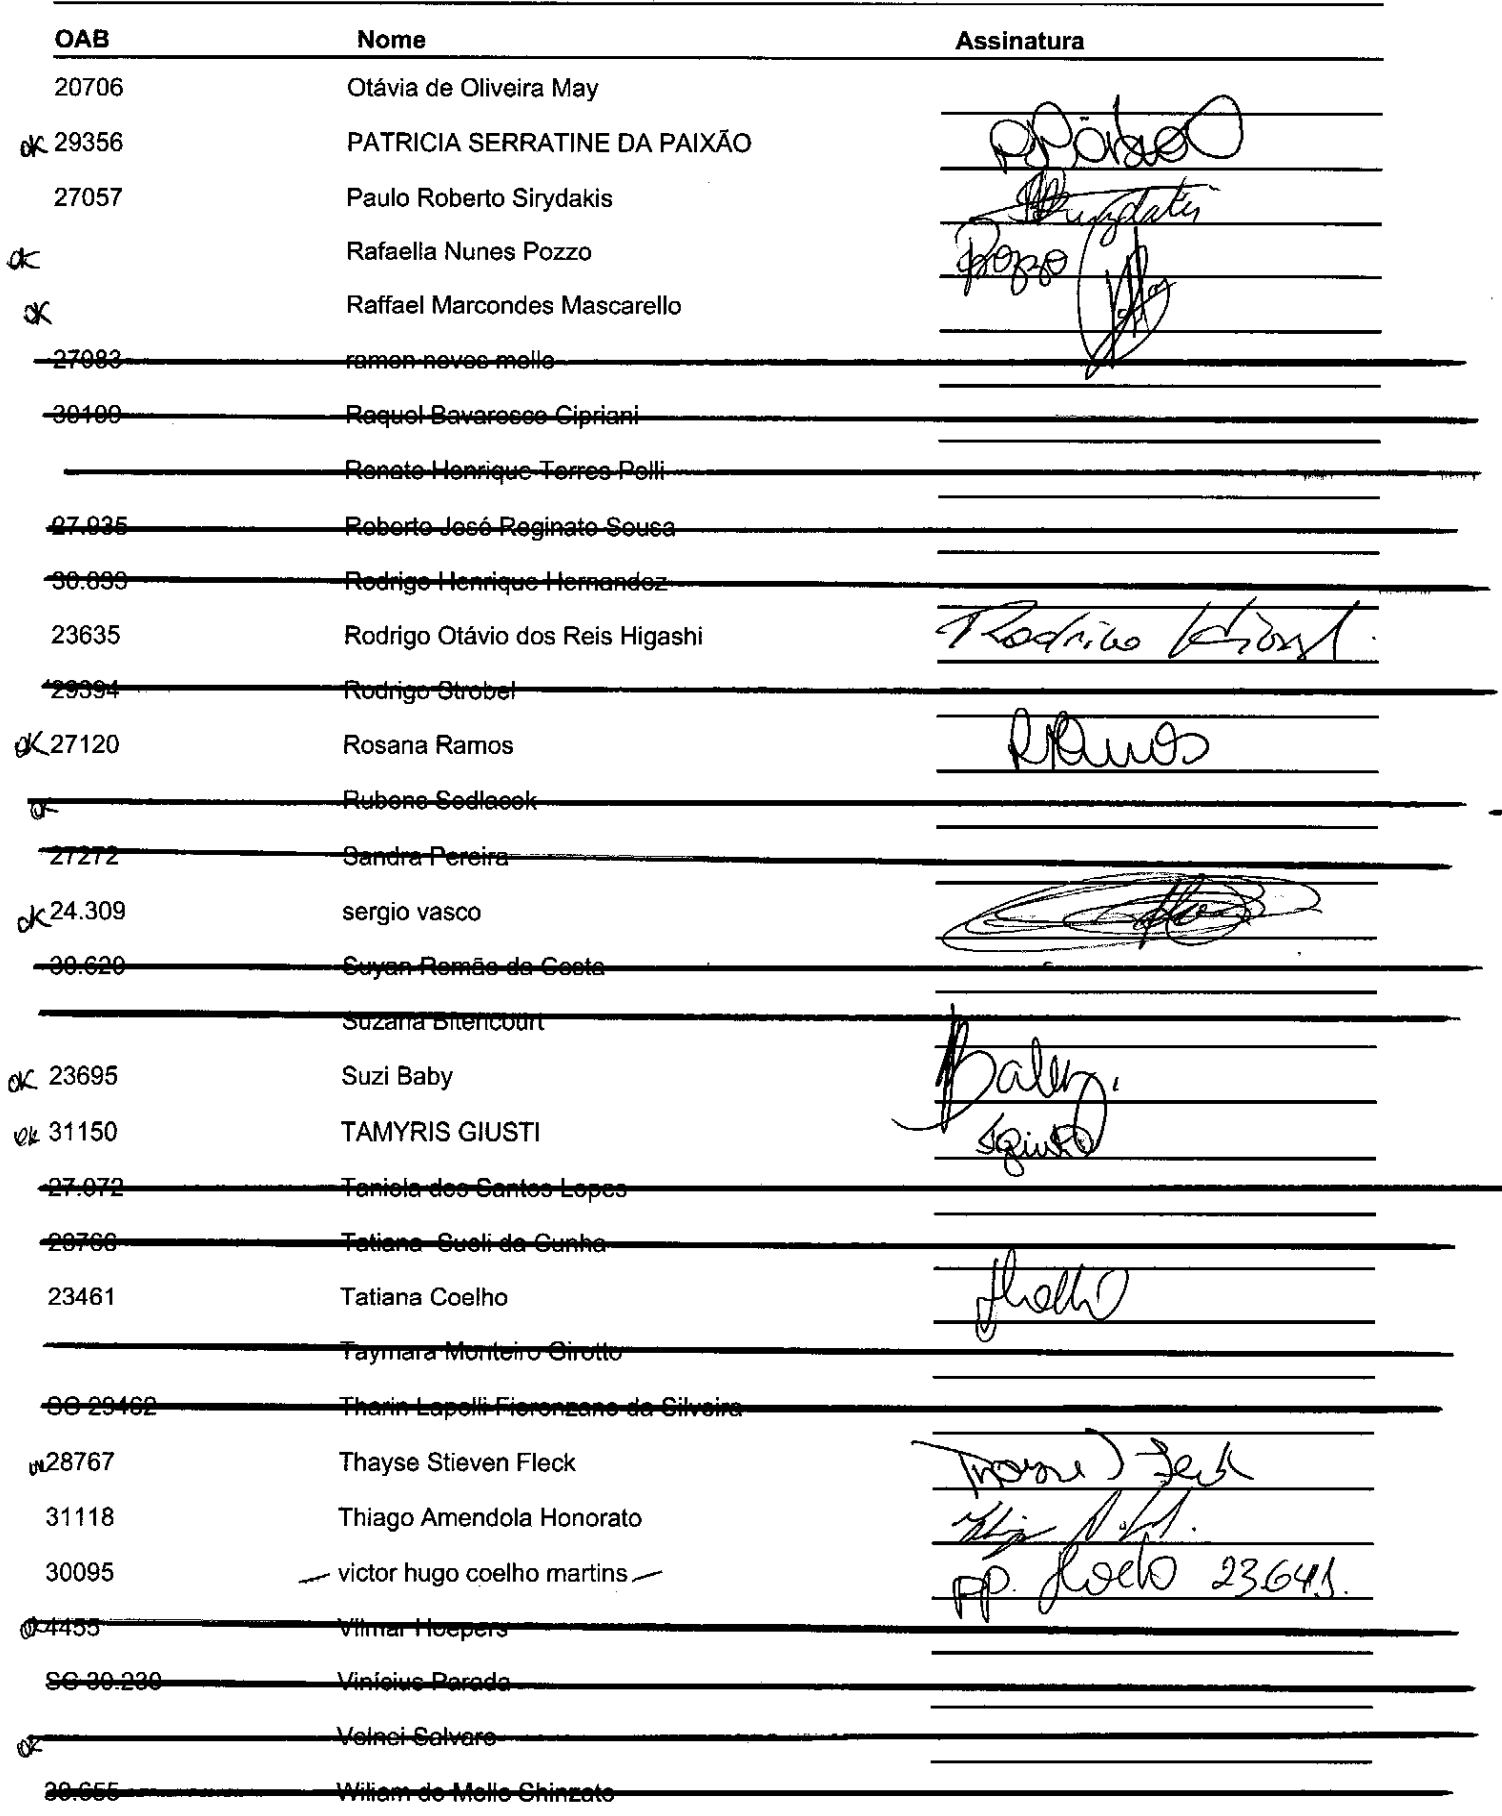 OAB Nome Assinatura
20706 Otávia de Oliveira May
ok 29356 PATRICIA SERRATINE DA PAIXÃO
27057 Paulo Roberto Sirydakis
ok Rafaella Nunes Pozzo Pozzo
ok Raffael Marcondes Mascarello
27083 ramon neves mello
30100 Raquel Bavaresco Cipriani
Renato Henrique Torres Pelli
27.935 Roberto José Reginato Sousa
30.833 Rodrigo Henrique Hernandez
23635 Rodrigo Otávio dos Reis Higashi Rodrigo
29394 Rodrigo Strobel
ok 27120 Rosana Ramos RRamos
ok Rubens Sedlacek
27272 Sandra Pereira
ok 24.309 sergio vasco
30.620 Suyan Romão da Costa
Suzana Bitencourt
ok 23695 Suzi Baby
ok 31150 TAMYRIS GIUSTI
27.072 Taniela dos Santos Lopes
28768 Tatiana Sueli da Cunha
23461 Tatiana Coelho
Taymara Monteiro Girotto
SC 29462 Tharin Lapolli Fioronzano da Silveira
28767 Thayse Stieven Fleck
31118 Thiago Amendola Honorato
30095 victor hugo coelho martins pp. 23.641.
ok 4455 Vilmar Hoepers
SC 30.230 Vinísius Parada
ok Volnei Salvaro
30.655 Wiliam de Mello Shinzato